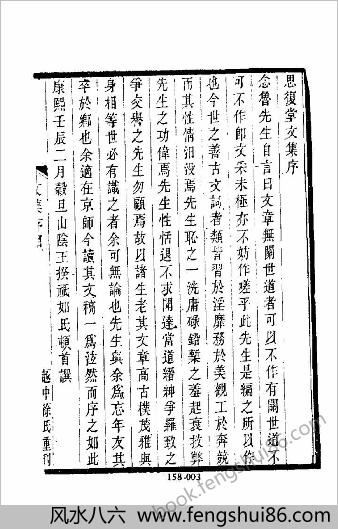 思復堂文集序
念魯先生自言曰文章無關世道者可以不作有關世道不
可不作即文采未極亦不妨作嗟乎此先生是編之所以作
也今世之善古文詞者類皆習於淫靡務於美觀工於奔競
而其性情汨沒焉先生恥之一洗庸碌鉛槧之羞起衰救弊
先生之功偉焉先生性恬退不求聞達當道縉紳爭羅致之
爭交譽之先生勿顧焉故以諸生老其文章高古樸茂雅與
身相等世必有識之者余可無論也先生與余為忘年友其
卒於鄉也余適在京師今讀其文稿一為泫然而序之如此
康熙壬辰二月穀旦山陰王揆頓首撰
文集序
徐氏重刊
158-003
book.fengshui86.com
风水八六 www.fengshui86.com